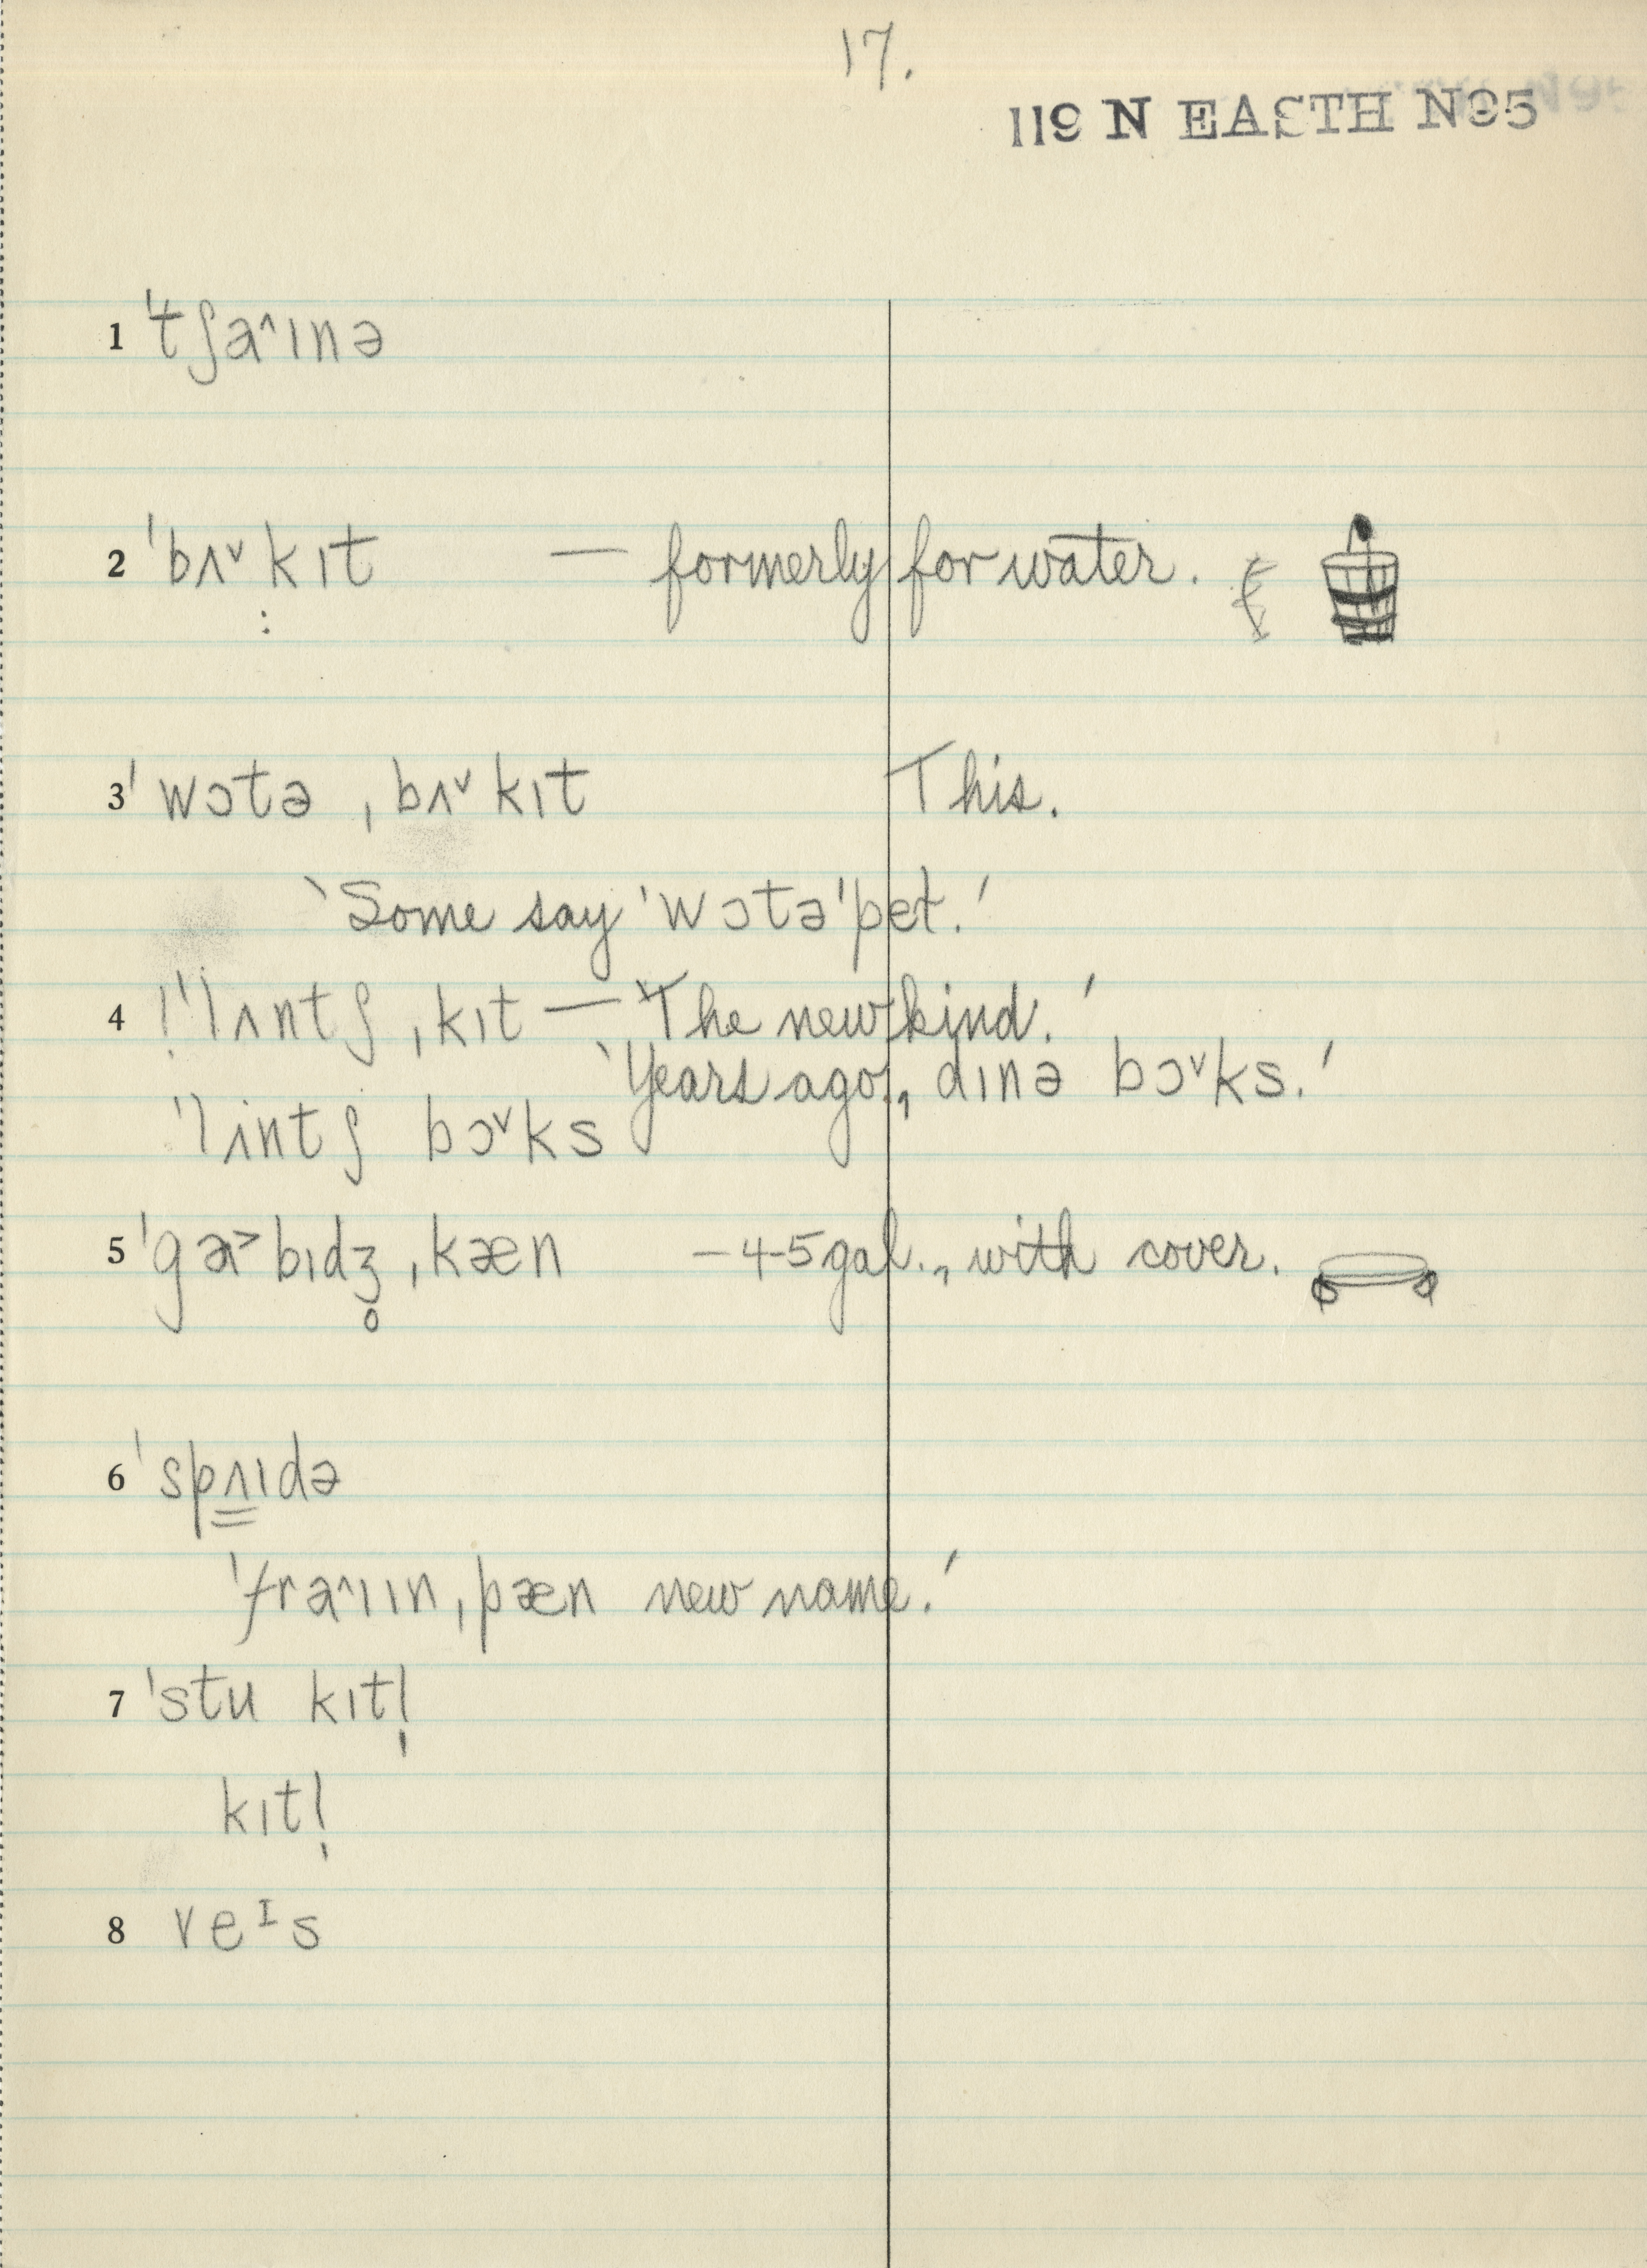 17.
119 N EASTH NO5
1 ˈtʃaˆɪnə
2 ˈbʌˇkɪt — formerly for water.
3 ˈwɔtə ˌbʌˇkɪt This.
‵Some say ˈwɔtəˈpet.′
4 !ˈlʌntʃ ˌkɪt — ‵The new kind.′
‵Years ago, dɪnə bɔˇks.′
ˈlʌntʃ bɔˇks
5 ˈga˃bɪdʒ̥ ˌkæn – 4-5 gal., with cover.
6 ˈspʌɪdə
ˈfraˆɪɪn ˌpæn new name.′
7 ˈstu kɪt!
kɪt!
8 veᴵs